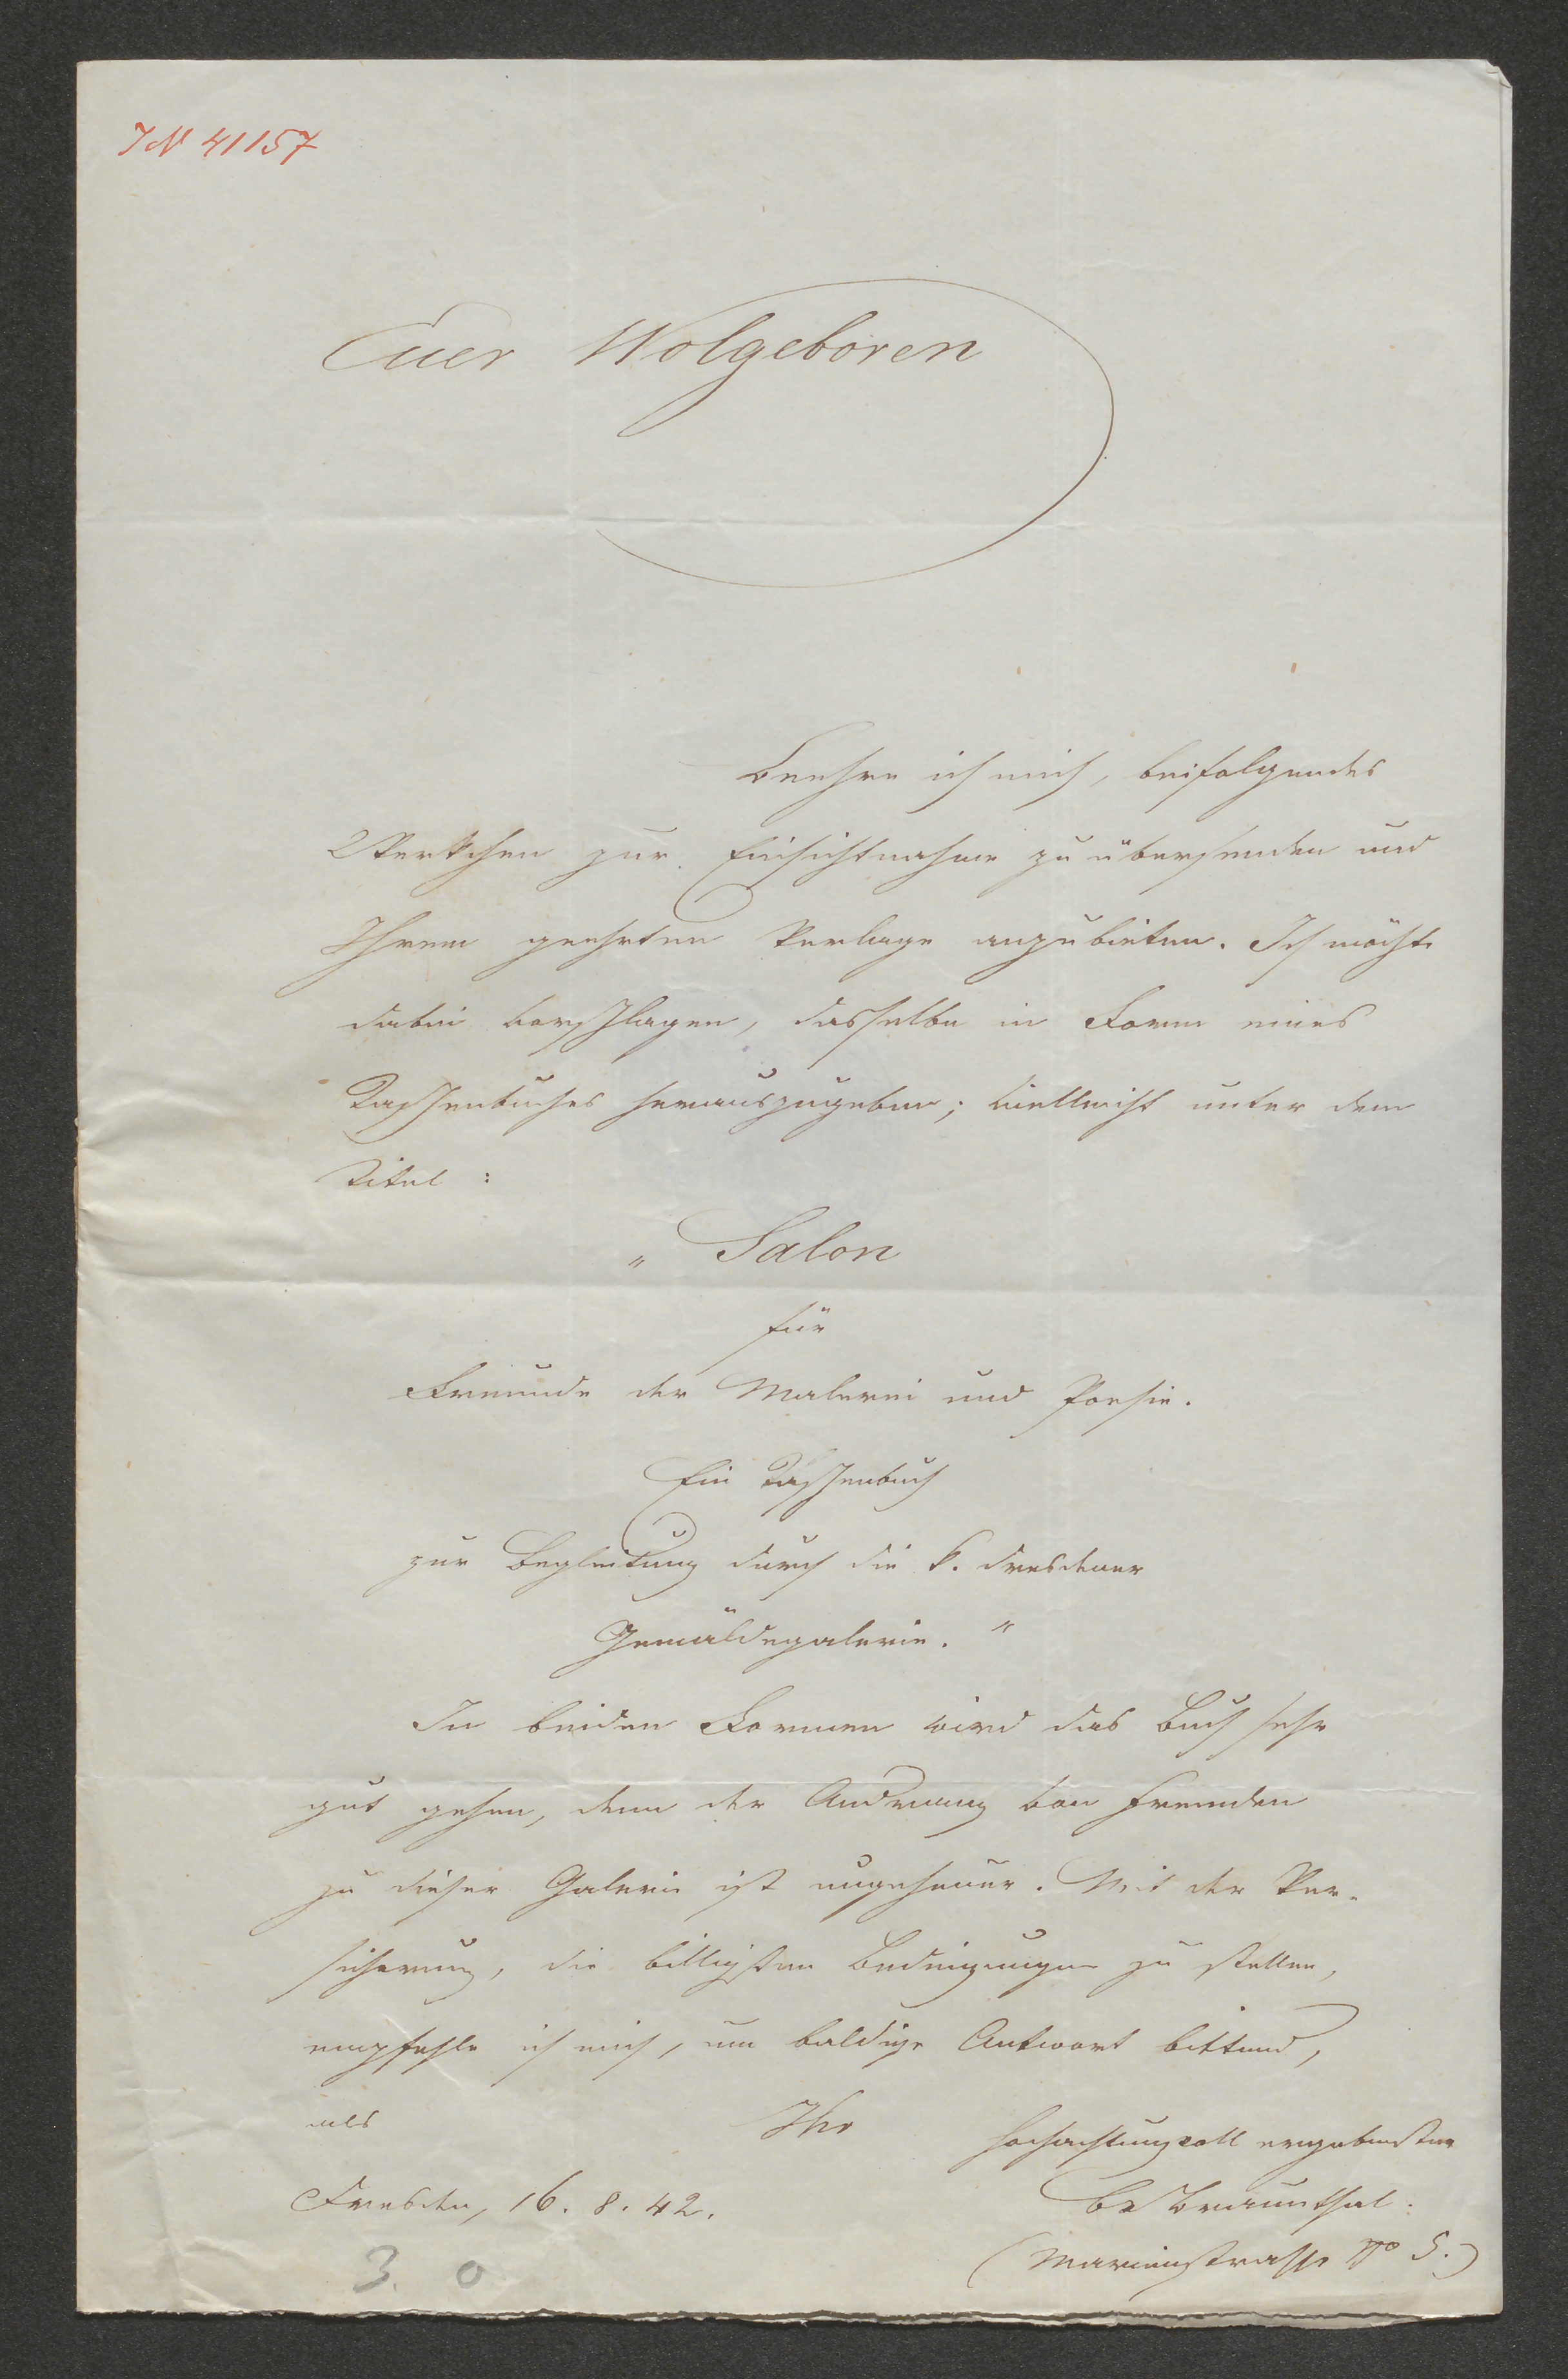 IN 41157
Euer Wolgeboren
beehre ich mich, beifolgendes
Werkchen zur Einsichtnahme zu übersenden und
Ihrem geehrten Verlage anzubieten. Ich möchte
dabei vorschlagen, dasselbe in Form eines
Taschenbuches herauszugeben; vielleicht unter dem
Titel:
„Salon
für
Freunde der Malerei und Poesie.
Ein Taschenbuch
zur Begleitung durch die k. dresdener
Gemäldegalerie."
In beiden Formen wird das Buch sehr
gut gehen, denn der Andrang von Fremden
zu dieser Galerie ist ungeheuer. Mit der Ver-
sicherung, die billigsten Bedingungen zu stellen,
empfehle ich mich, um baldige Antwort bittend,
als Ihr hochachtungsvoll ergebenster
Dresden, 16. 8. 42. Braunthal.
(Marienstrasse No 5.)
3. 0